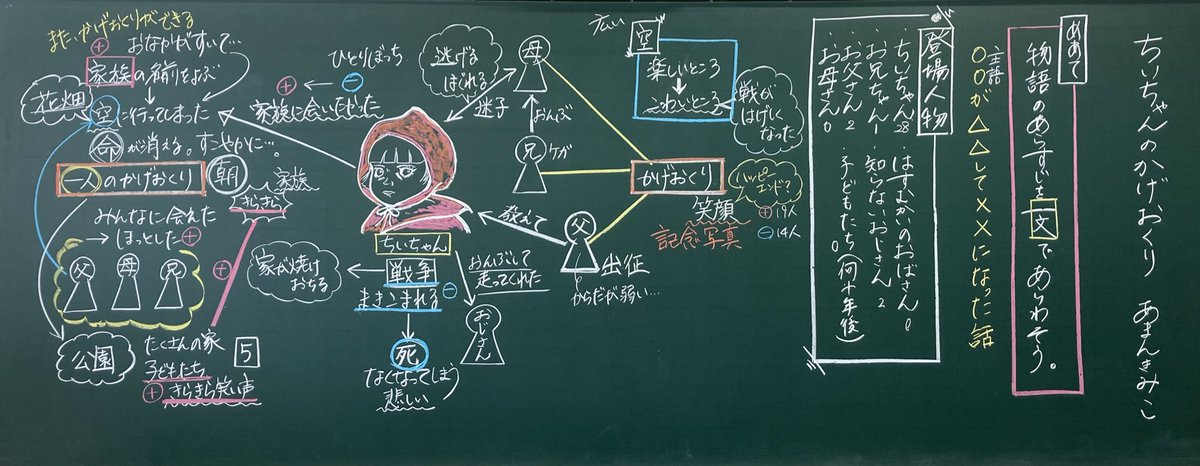 ちいちゃんのかげおくり　あまんきみこ
めあて
物語のあらすじを一文であらわそう。
主語
○○が△△して××になった話
登場人物
・ちいちゃん 28
・お兄ちゃん 1
・お父さん 2
・お母さん 0
・はすむかいのおばさん 0
・知らないおじさん 2
・子どもたち(何十年後) 0
広い
空
楽しいところ
↓
こわいところ
戦がはげしくなった
かげおくり
ハッピーエンド?
⊕ 19人
⊖ 14人
笑顔
記念写真
母
おんぶ
兄
ケガ
父
出征
からだが弱い…
教えて
逃げる
はぐれる
迷子
ひとりぼっち
⊕←⊖
家族に会いたかった
ちいちゃん
戦争
まきこまれる ⊖
家が焼けおちる
死
なくなってしまう
悲しい
おんぶして
走ってくれた
おじさん
また、かげおくりができる
⊕ おなかがすいて…
家族の名前をよぶ
花畑
空に行ってしまった
命が消える。すこやかに…。
一人のかげおくり
朝
家族
きらきら
みんなに会えた
→ほっとした⊕
父
母
兄
⊕
公園
たくさんの家
5
子どもたち
⊕ きらきら笑い声